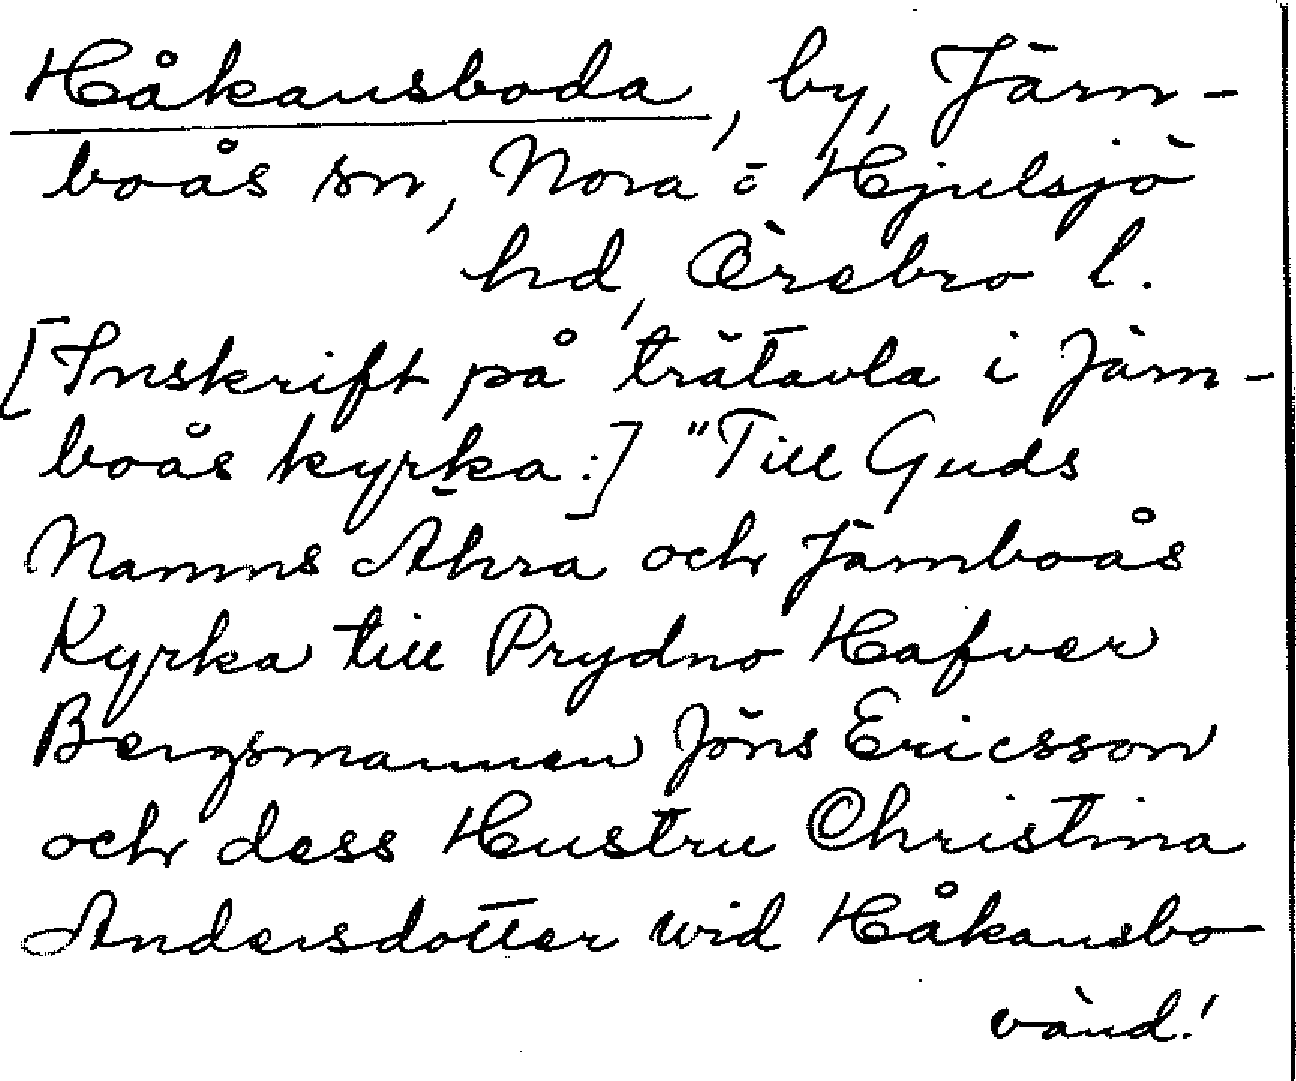 Håkansboda, by, Järn-
boås sn, Nora o Hjulsjö
hd, Örebro l.
[Inskrift på trätavla i Järn-
boås kyrka:] "Till Guds
Namns Ähra och Järnboås
Kyrka till Prydno Hafver
Bergsmannen Jöns Ericsson
och dess Hustru Christina
Andersdotter wid Håkansbo
vänd!